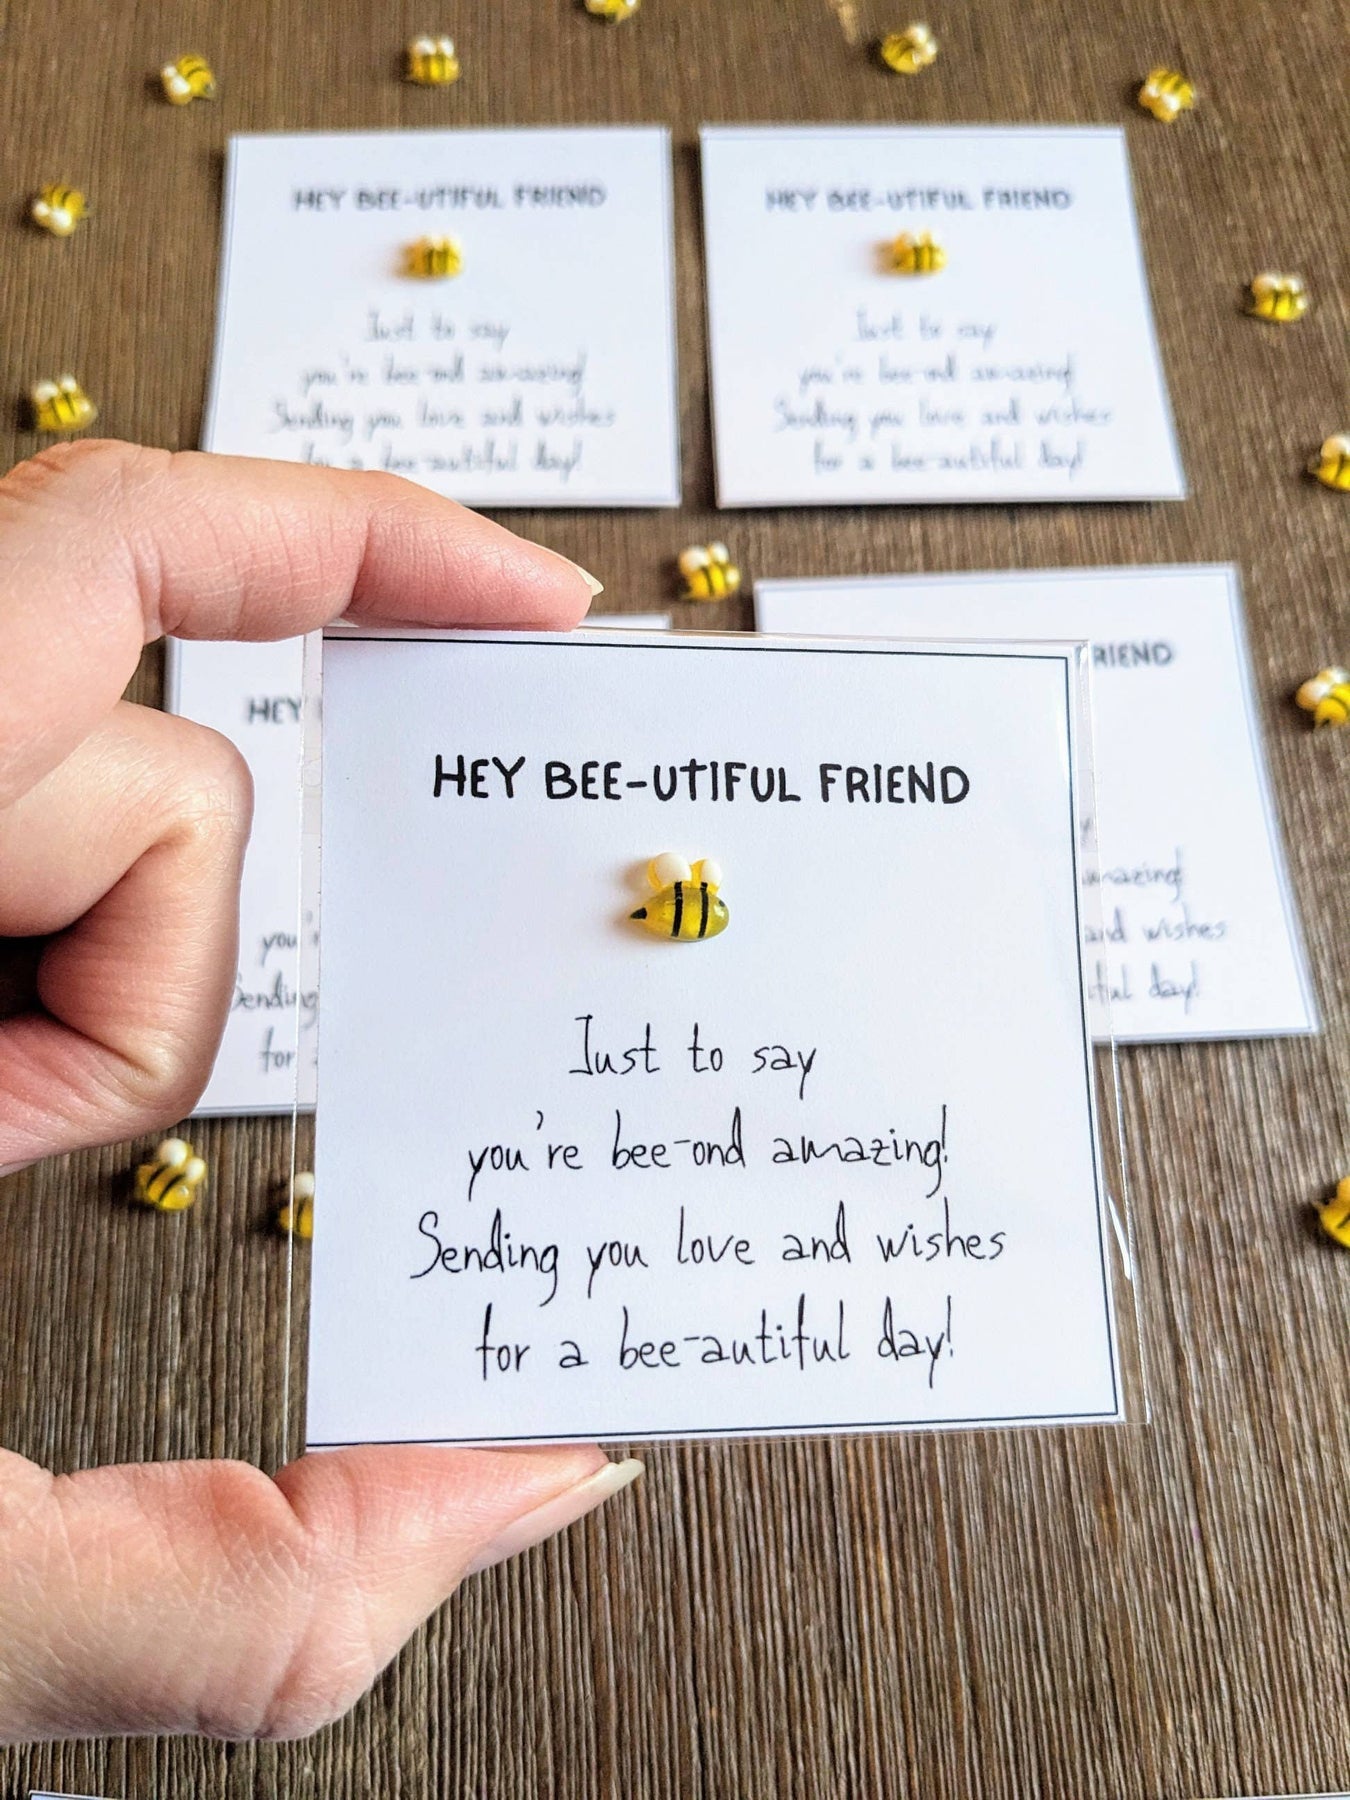 HEY BEE-UTIFUL FRIEND
Just to say
you're bee-ond amazing!
Sending you love and wishes
for a bee-autiful day!
HEY BEE-UTIFUL FRIEND
Just to say
you're bee-ond amazing!
Sending you love and wishes
for a bee-autiful day!
HEY BEE-UTIFUL FRIEND
Just to say
you're bee-ond amazing!
Sending you love and wishes
for a bee-autiful day!
HEY
you'r
Sending
for
RIEND
y
amazing!
and wishes
iful day!